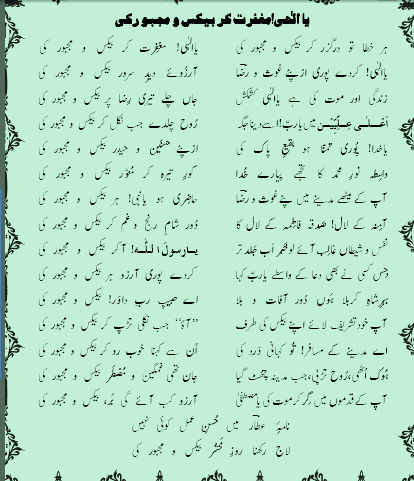 یا الٰہی! مغفرت کر بیکس و مجبور کی
ہر خطا تو درگزر کر بیکس و مجبور کی یاالٰہی! مغفِرت کر بیکس و مجبور کی
یاالٰہی! کردے پوری ازپئے غوث و رضؔا آرزوئے دیدِ سرور بیکس و مجبور کی
زندگی اور موت کی ہے یاالٰہی کشمکش جاں چلے تیری رِضا پر بیکس و مجبور کی
اَعلٰی عِلِّیِّین میں یاربّ! اسے دینا جگہ رُوح چلدے جب نکل کر بیکس و مجبور کی
یاخدا! پوری تمنّا ہو بقیعِ پاک کی ازپئے حسنین و حیدر بیکس و مجبور کی
واسِطہ نورِ محمد کا تجھے پیارے خدا گورِ تیرہ کر منوّر بیکس و مجبور کی
آپ کے میٹھے مدینے میں پئے غوث و رضؔا حاضِری ہو یانبی! ہر بیکس و مجبور کی
آمِنہ کے لال! صدقہ فاطِمہ کے لال کا دُور شامِ رنج و غم کر بیکس و مجبور کی
نفس و شیطاں غالب آئے لو خبر اب جلد تر یارسولَ اللہ! آکر بیکس و مجبور کی
جس کسی نے بھی دعا کے واسطے یاربّ کہا کردے پوری آرزو ہر بیکس و مجبور کی
بہرِ شاہِ کربلا ہوں دُور آفات و بلا اے حبیبِ ربِّ داور! بیکس و مجبور کی
آپ خود تشریف لائے اپنے بیکس کی طرف ”آہ“ جب نکلی تڑپ کر بیکس و مجبور کی
اے مدینے کے مسافر! تُو کہانی درد کی اُن سے کہنا خوب رو کر بیکس و مجبور کی
ہُوک اُٹھی، رُوح تڑپی، جب مدینہ چُھٹ گیا جان تھی غمگین و مُضطَر بیکس و مجبور کی
آپ کے قدموں میں گر کر موت کی یامصطَفٰے آرزو کب آئے گی بَر، بیکس و مجبور کی
نامۂ عطّاؔر میں حُسنِ عمل کوئی نہیں
لاج رکھنا روزِ محشر بیکس و مجبور کی